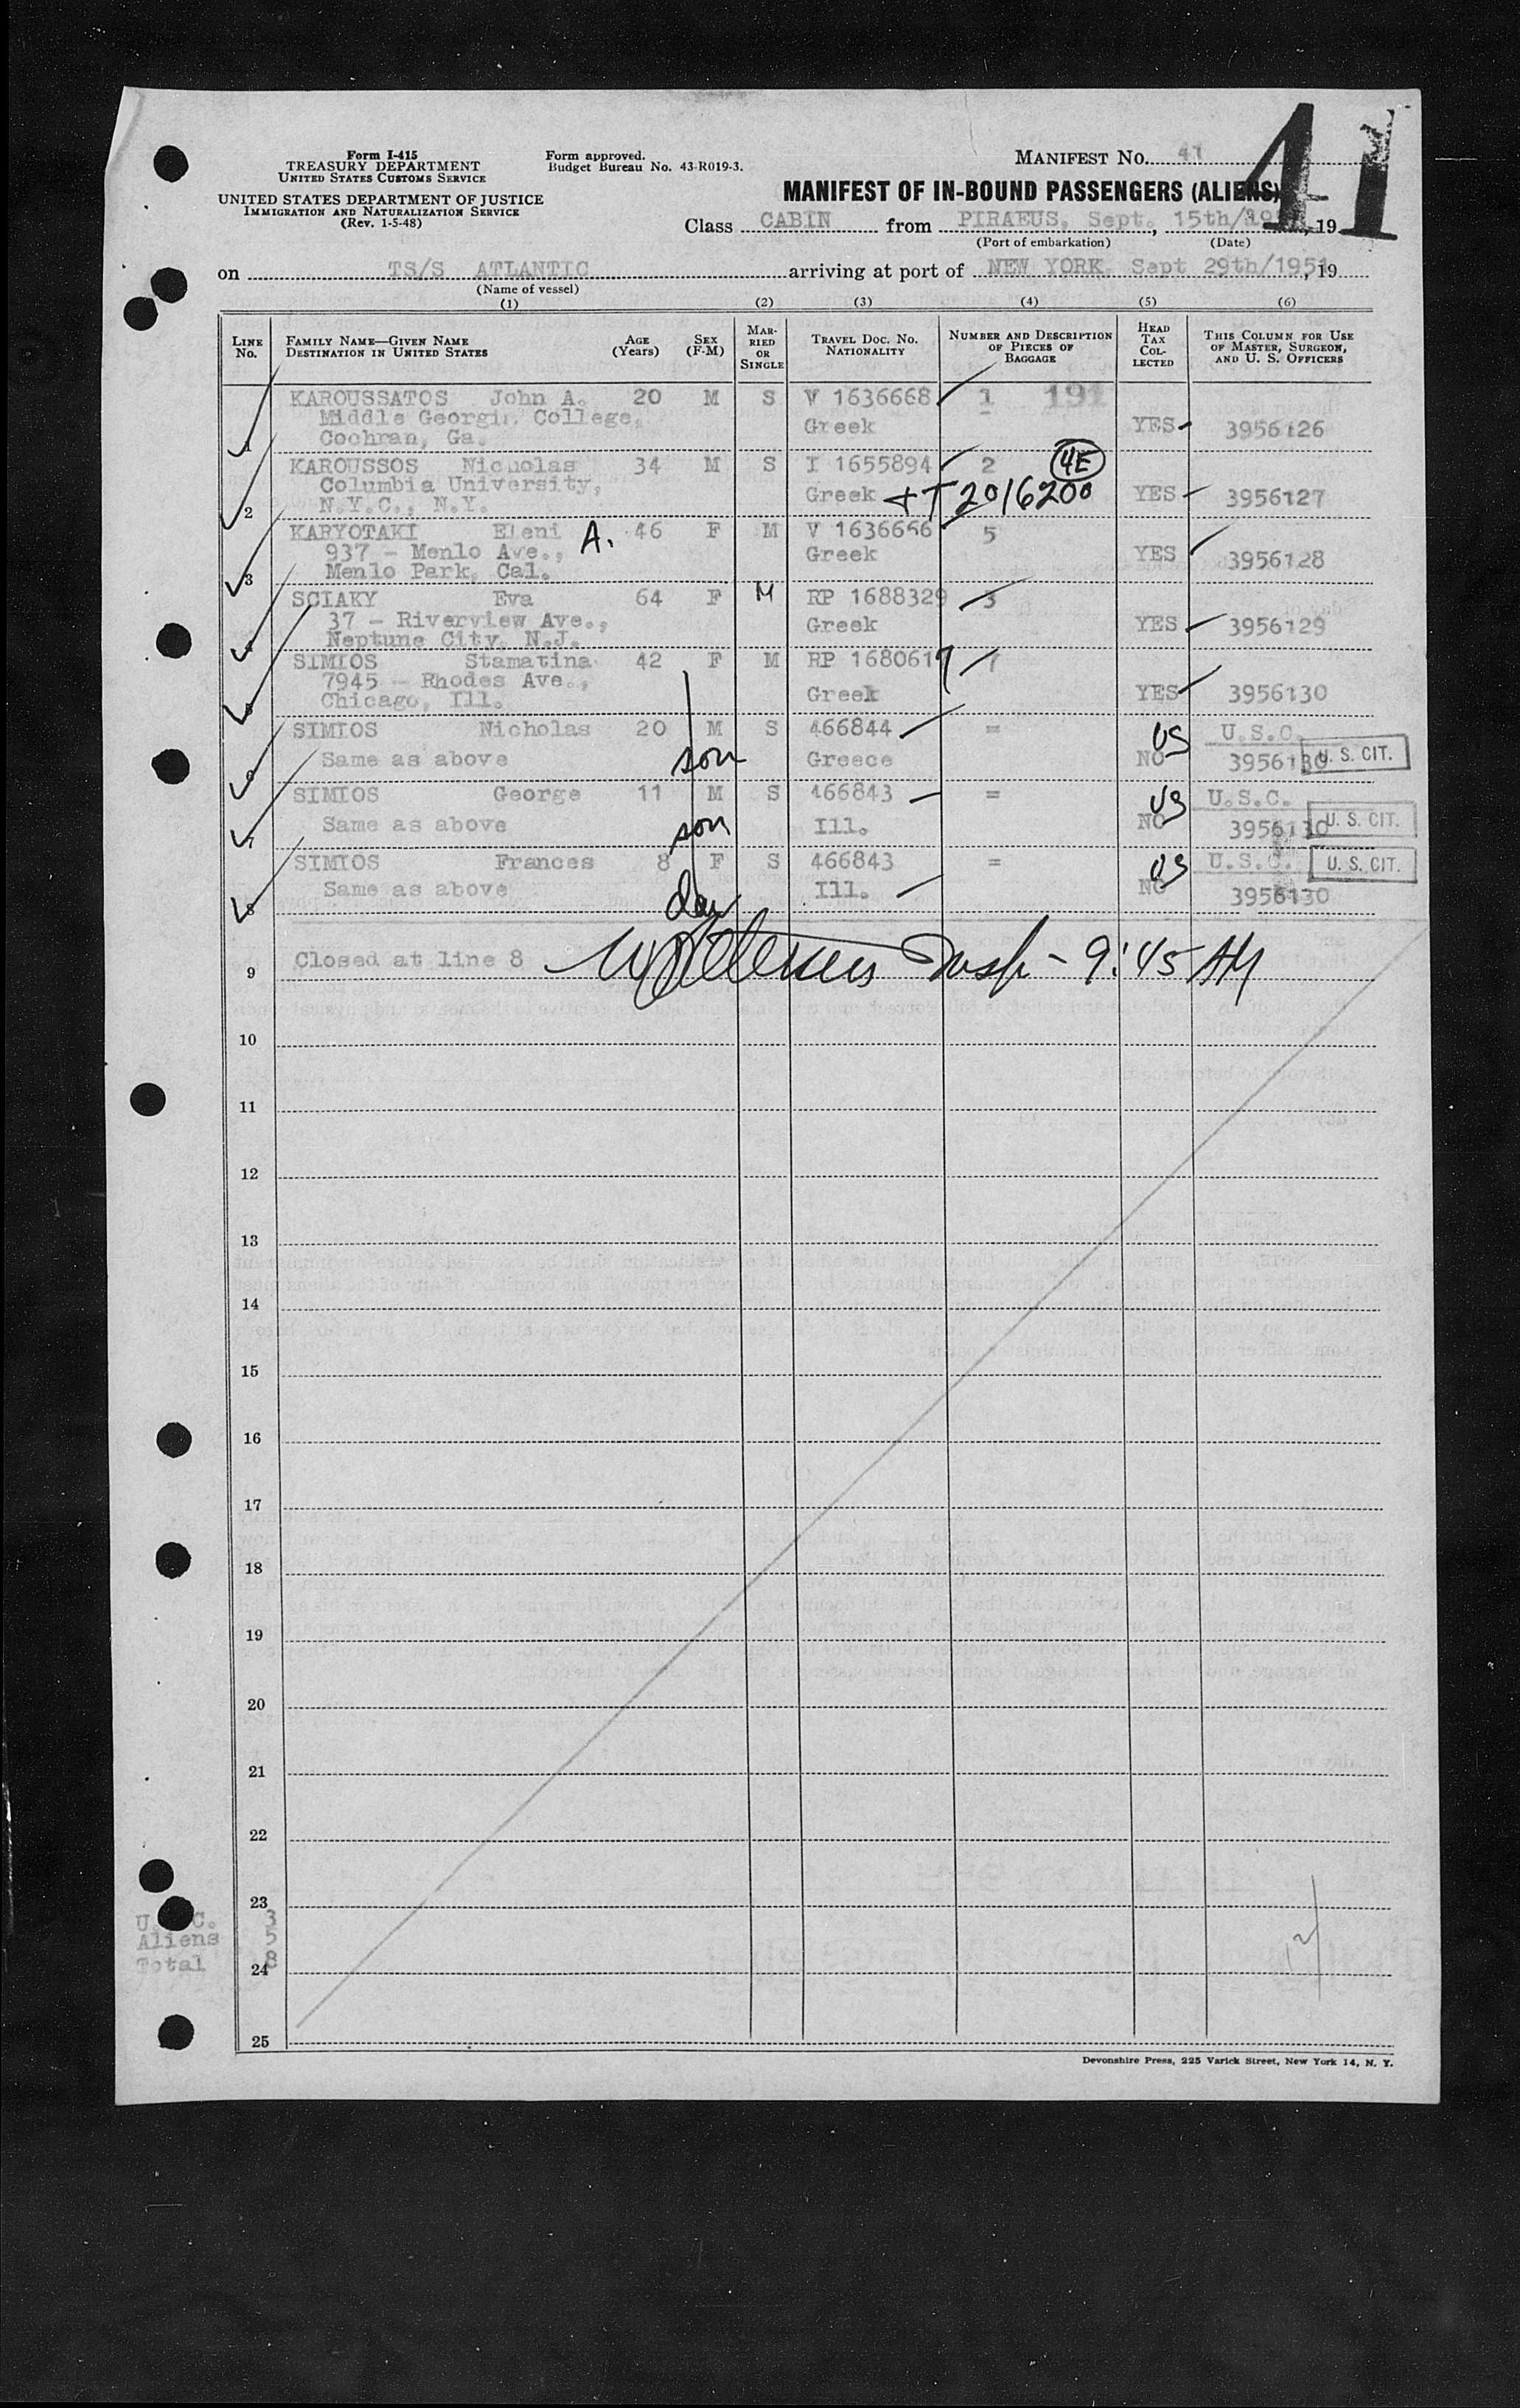 41
Form I-415
TREASURY DEPARTMENT
UNITED STATES CUSTOMS SERVICE
UNITED STATES DEPARTMENT OF JUSTICE
IMMIGRATION AND NATURALIZATION SERVICE
(Rev. 1-5-48)
Form approved.
Budget Bureau No. 43-R019-3.
MANIFEST NO. 41
MANIFEST OF IN-BOUND PASSENGERS (ALIENS)
Class CABIN from PIRAEUS, Sept. 15th/ , 19
(Port of embarkation) (Date)
on TS/S ATLANTIC arriving at port of NEW YORK, Sept 29th/1951, 19
(Name of vessel)
(1) (2) (3) (4) (5) (6)
LINE No. FAMILY NAME—GIVEN NAME DESTINATION IN UNITED STATES AGE (Years) SEX (F-M) MARRIED OR SINGLE TRAVEL DOC. NO. NATIONALITY NUMBER AND DESCRIPTION OF PIECES OF BAGGAGE HEAD TAX COLLECTED THIS COLUMN FOR USE OF MASTER, SURGEON, AND U. S. OFFICERS
KAROUSSATOS John A. 20 M S V 1636668 1 191
Middle Georgia College, Greek YES 3956126
1 Cochran, Ga.
KAROUSSOS Nicholas 34 M S I 1655894 2 4E
Columbia University, Greek +T 2016200 YES 3956127
2 N.Y.C., N.Y.
KARYOTAKI Eleni A. 46 F M V 1636666 5
937 - Menlo Ave., Greek YES 3956128
3 Menlo Park, Cal.
SCIAKY Eva 64 F M RP 1688329 3
37 - Riverview Ave., Greek YES 3956129
4 Neptune City, N.J.
SIMIOS Stamatina 42 F M RP 1680617
7945 - Rhodes Ave., Greek YES 3956130
5 Chicago, Ill.
SIMIOS Nicholas 20 M S 466844 = US U.S.C.
6 Same as above son Greece NO 3956130 U. S. CIT.
SIMIOS George 11 M S 466843 = US U.S.C.
7 Same as above son Ill. NO 3956130 U. S. CIT.
SIMIOS Frances 8 F S 466843 = US U.S.C. U. S. CIT.
8 Same as above dau Ill. NO 3956130
9 Closed at line 8 Insp - 9:45 AM
10
11
12
13
14
15
16
17
18
19
20
21
22
23
U.S.C. 3
Aliens 5
Total 8
24
25
Devonshire Press, 225 Varick Street, New York 14, N. Y.